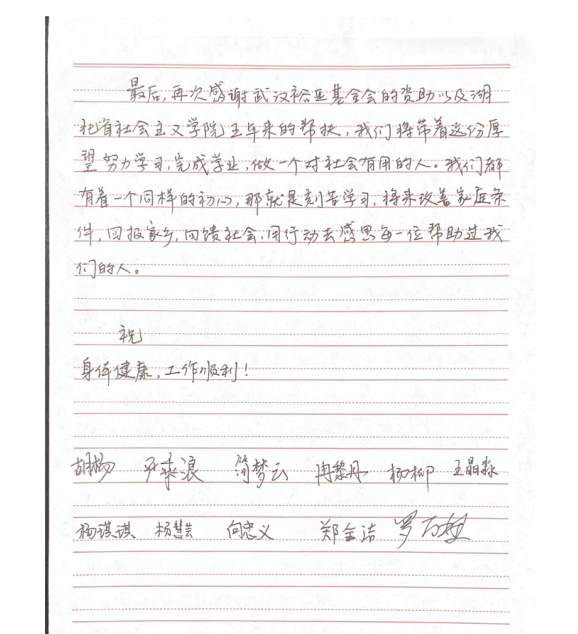 最后，再次感谢武汉裕亚基金会的资助以及湖
北省社会主义学院五年来的帮扶，我们将带着这份厚
望努力学习，完成学业，做一个对社会有用的人。我们都
有着一个同样的初心，那就是刻苦学习，将来改善家庭条
件，回报家乡，回馈社会，用行动去感恩每一位帮助过我
们的人。
祝
身体健康，工作顺利！
胡杨 浪 简梦云 冉黎丹 杨柳 王晶淼
杨琪琪 杨慧芸 向忠义 郑金洁 罗